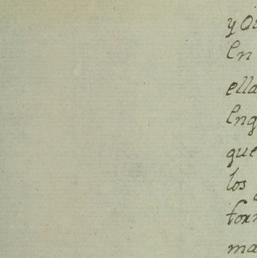 y Qu
En
ella
Eng
que
los
for
ma